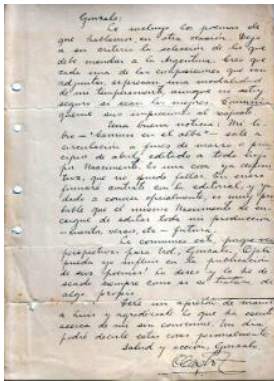 Gonzalo:
Le incluyo los poemas de
que hablamos en otra ocasión. Dejo
a su criterio la selección de los que
debe mandar a la Argentina. Creo que
cada una de las composiciones que van
adjuntas, expresan una modalidad
de mi temperamento, aunque no estoy
seguro si sean las mejores.
queme sus impresiones al respecto.
Una buena noticia: Mi li-
bro - "Caminos en el alba" - sale a
circulación a fines de marzo o prin-
cipios de abril, editado a todo lujo
por Nascimento. Es una cosa ya defini-
tiva, que no puede fallar. En enero
firmaré contrato con la editorial, y ya
dado a conocer oficialmente, es muy pro-
bable que el mismo Nascimento se en-
cargue de editar toda mi producción
- cuentos, versos, etc - futura.
Le comunico esto, porque veo
perspectivas para Ud., Gonzalo. Ojalá
pueda yo influir en la publicación
de sus "poemas". Lo deseo y lo he de-
seado siempre como si se tratara de
algo propio.
un apretón de manos
a Luis y agradézcale lo que ha escrito
acerca de mí sin conocerme. Un día
podré decirle estas cosas personalmente.
Salud y acción, Gonzalo.